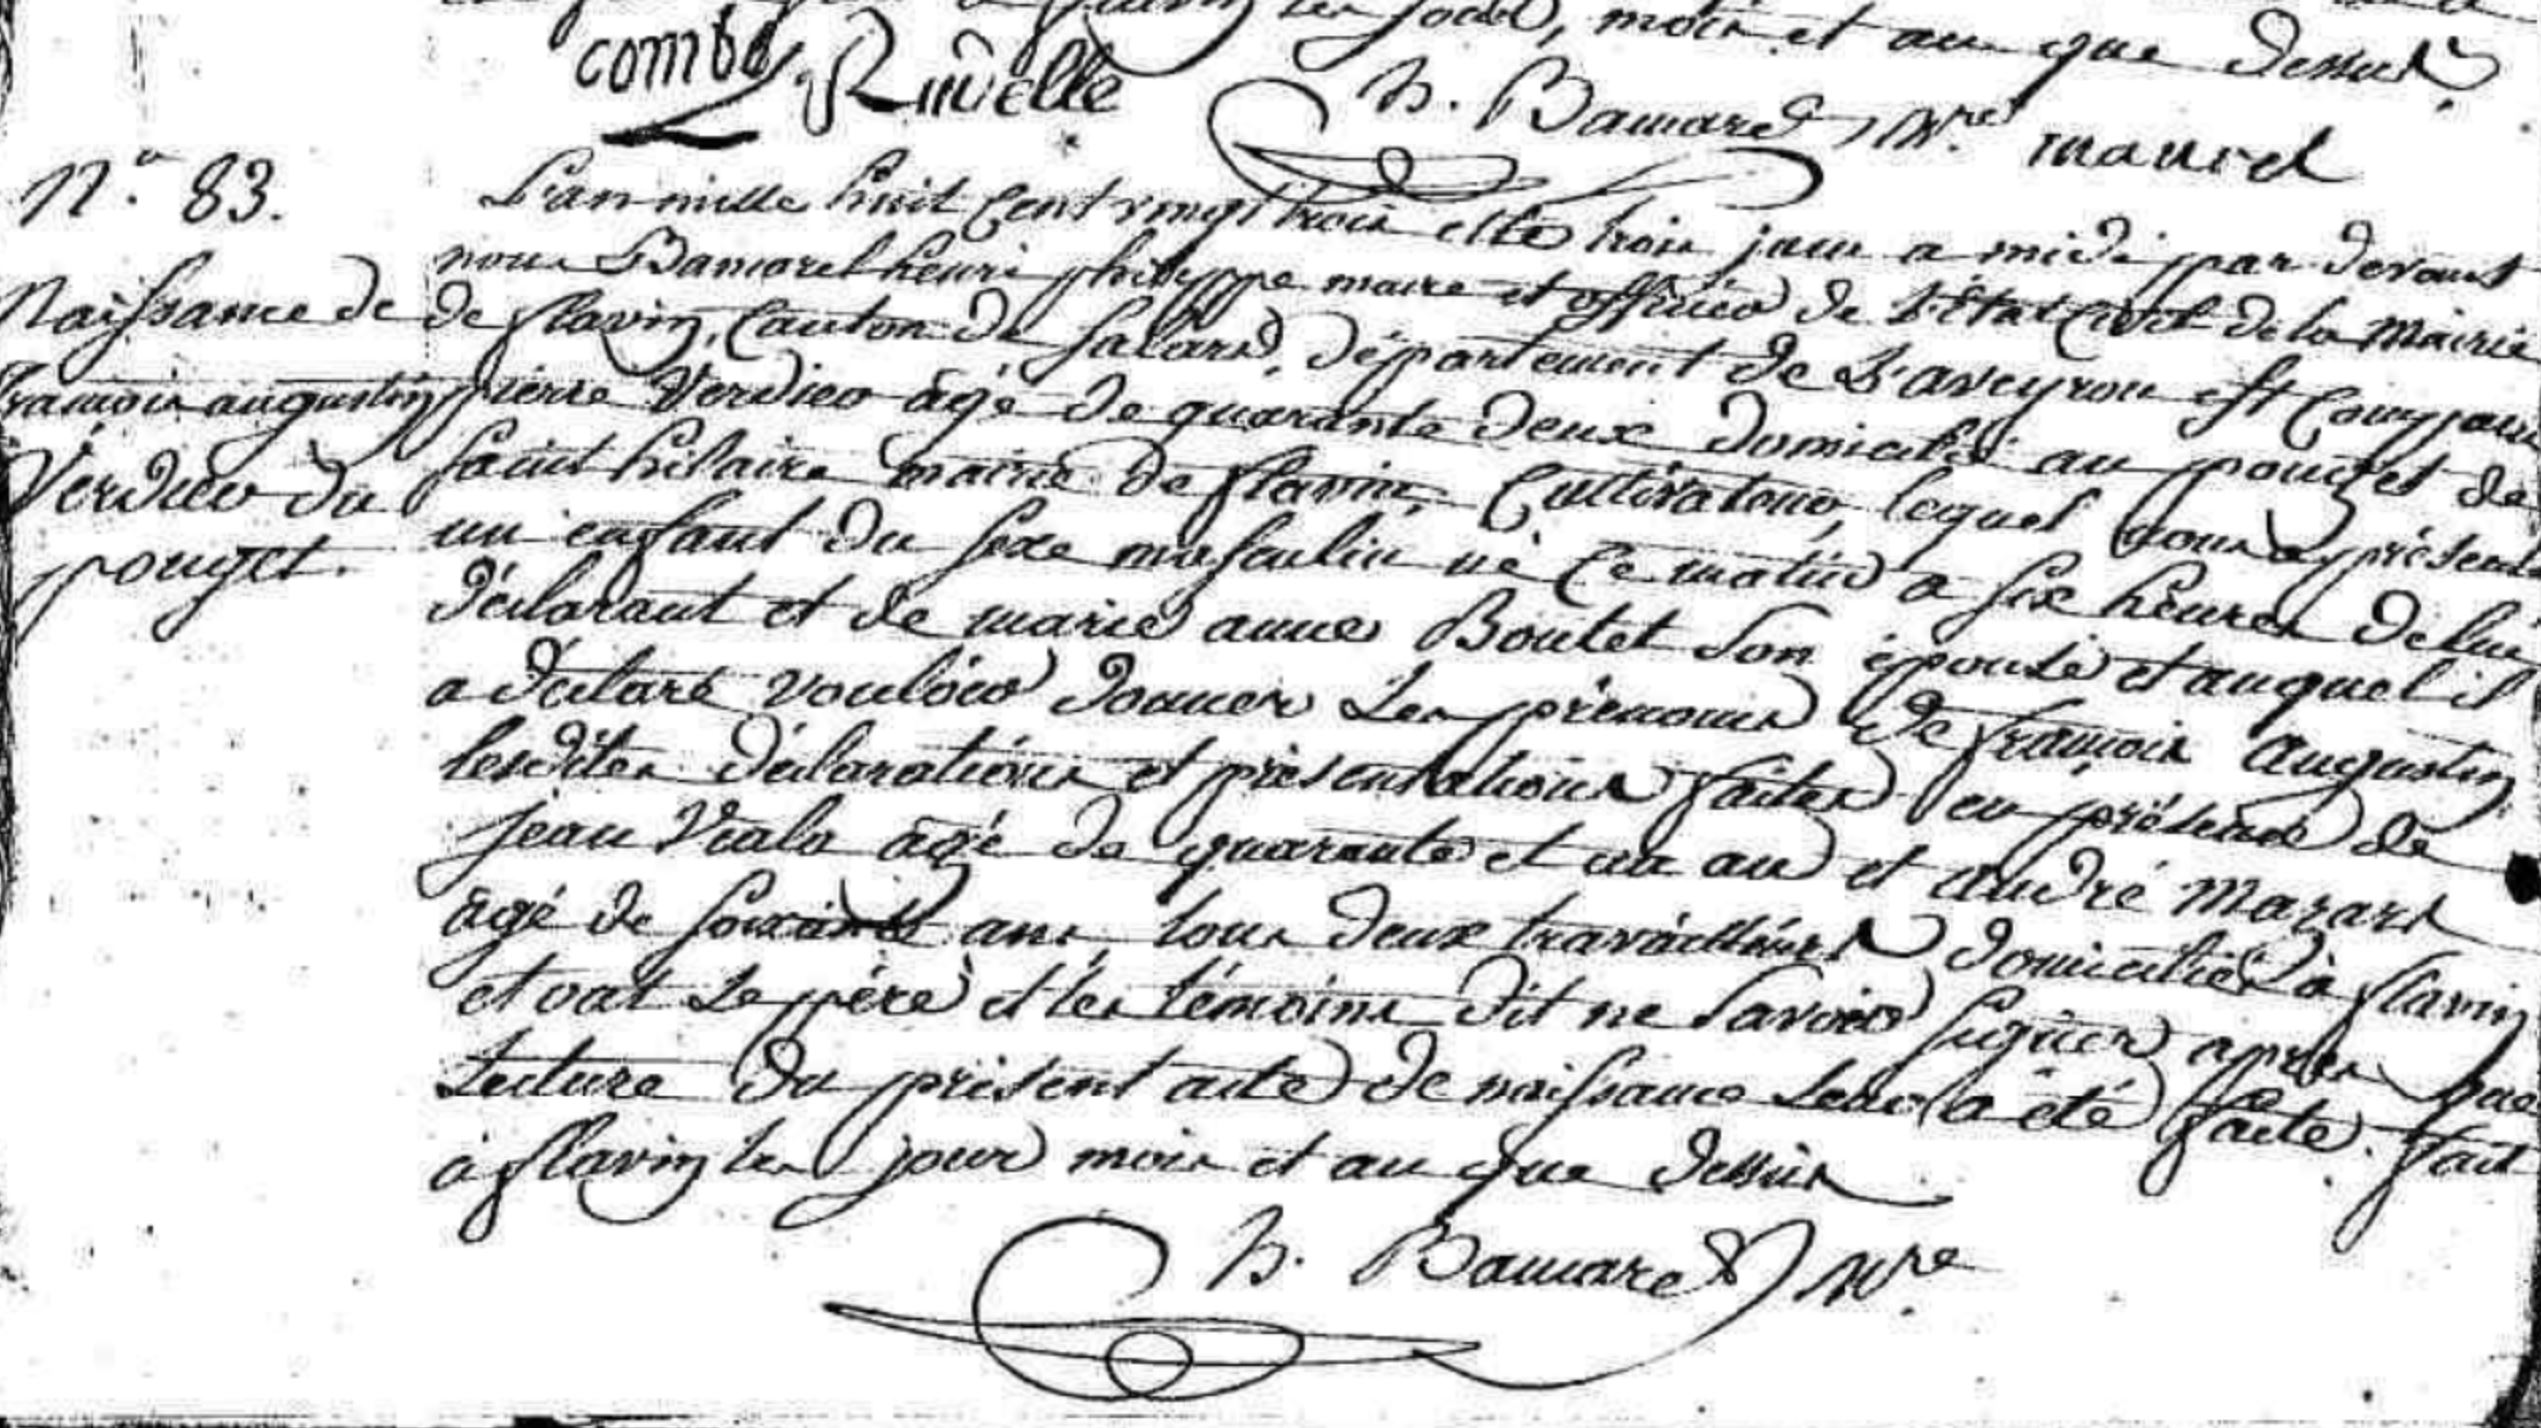 jour, mois et an que dessus
combe Rivelle
h. Bamarel, Mre maurel
N.o 83.
Naissance de
françois augustin
Verdier du
pouget.
L'an mille huit cent vingt trois et le trois juin a midi par devant
nous Bamarel henri philippe maire et officier de l'état civil de la Mairie
de flavin, canton de salars, département de L'aveyron est comparu
pierre Verdier âgé de quarante deux domicilié au pouget de
saint hilaire mairie de flavin, Cultivateur, lequel nous a présenté
un enfant du sexe masculin né ce matin a six heures de lui
déclarant et de marie anne Boutet son épouse et auquel il
a déclaré vouloir donner les prénoms de françois augustin
lesdites déclarations et présentations faites en présence de
jean Viala âgé de quarante et un an et andré Mazars
âgé de soixante ans, tous deux travailleurs domiciliés à flavin
et ont le père et les témoins dit ne savoir signer après que
lecture du présent acte de naissance leur a été faite. fait
à flavin les jour mois et an que dessus
h. Bamarel Mre